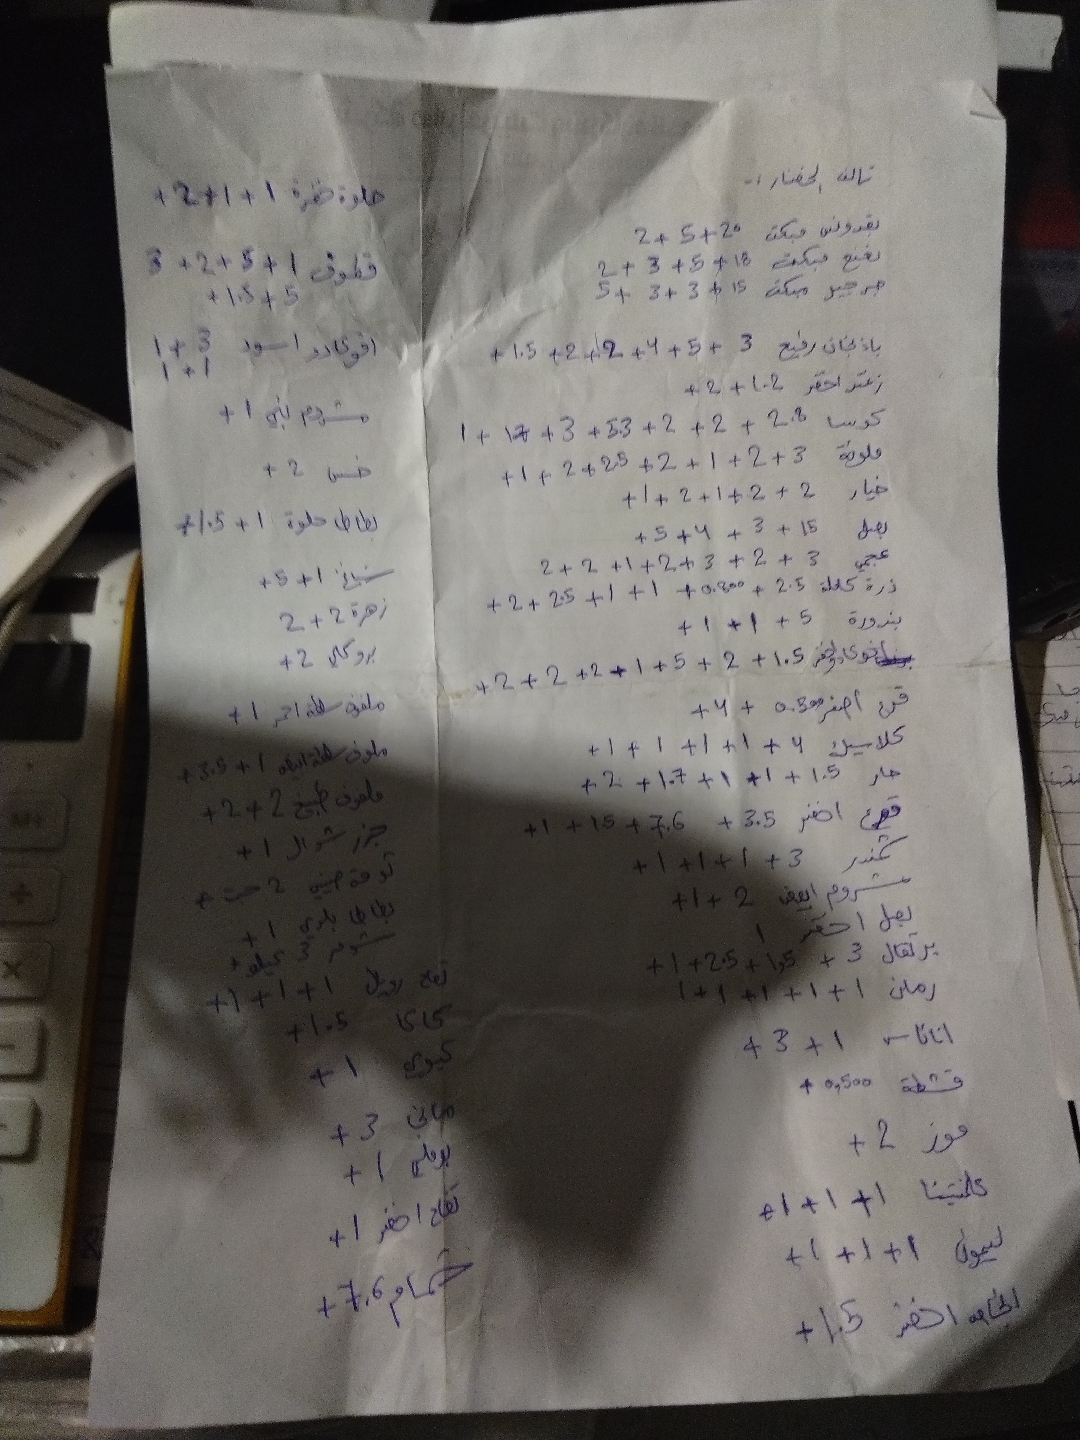 تالف الخضار :-
بقدونس مبكت 20 + 5 + 2
نعنع مبكت 18 + 5 + 3 + 2
جرجير مبكت 15 + 3 + 3 + 5
باذنجان رفيع 3 + 5 + 4 + 2 + 2 + 1.5 +
زعتر اخضر 1.2 + 2 +
كوسا 2.8 + 2 + 2 + 53 + 3 + 17 + 1
ملونة 3 + 2 + 1 + 2 + 2.5 + 2 + 1 +
خيار 2 + 2 + 1 + 2 + 1 +
بصل 15 + 3 + 4 + 5 +
عجمي 3 + 2 + 3 + 2 + 1 + 2 + 2
ذرة 2.5 + 0.800 + 1 + 1 + 2.5 + 2 +
بندورة 5 + 1 + 1 +
افوكادو اخضر 1.5 + 2 + 5 + 1 + 2 + 2 + 2 +
قرع اصفر 0.500 + 4 +
كلاسيك 4 + 1 + 1 + 1 + 1 +
حار 1.5 + 1 + 1 + 1.7 + 2 +
قرع اخضر 3.5 + 7.6 + 15 + 1 +
شمندر 3 + 1 + 1 + 1 +
مشروم ابيض 2 + 1 +
بصل اخضر 1
برتقال 3 + 1.5 + 2.5 + 1 +
رمان 1 + 1 + 1 + 1 + 1
اناناس 1 + 3 +
قشطة 0,500 +
موز 2 +
كلمنتينا 1 + 1 + 1 +
ليمون 1 + 1 + 1 +
اخضر 1.5 +
حلوة 1 + 1 + 2 +
قطوف 1 + 5 + 2 + 3
5 + 1.5 +
افوكادو اسود 3 + 1
1 + 1
مشروم بني 1 +
خس 2 +
بطاطا حلوة 1 + 1.5 +
1 + 5 +
زهرة 2 + 2
بروكلي 2 +
ملفوف سلطة احمر 1 +
ملفوف سلطة ابيض 1 + 3.5 +
ملفوف طبيخ 2 + 2 +
جزر شوال 1 +
2 حبت +
بطاطا 1 +
ثوم 3 كيلو +
تفاح رويال 1 + 1 + 1 +
كاكا 1.5 +
كيوي 1 +
3 +
بوملي 1 +
تفاح اخضر 1 +
شمام 7.6 +